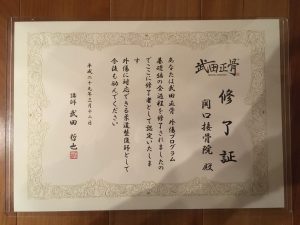 武田正骨
修了証
関口接骨院 殿
あなたは武田正骨 外傷プログラム
基礎編の全過程を修了されましたの
でここに修了者として認定いたしま
す
外傷に対応できる柔道整復師として
今後も励んでください
平成二十九年三月十二日
講師 武田 哲也